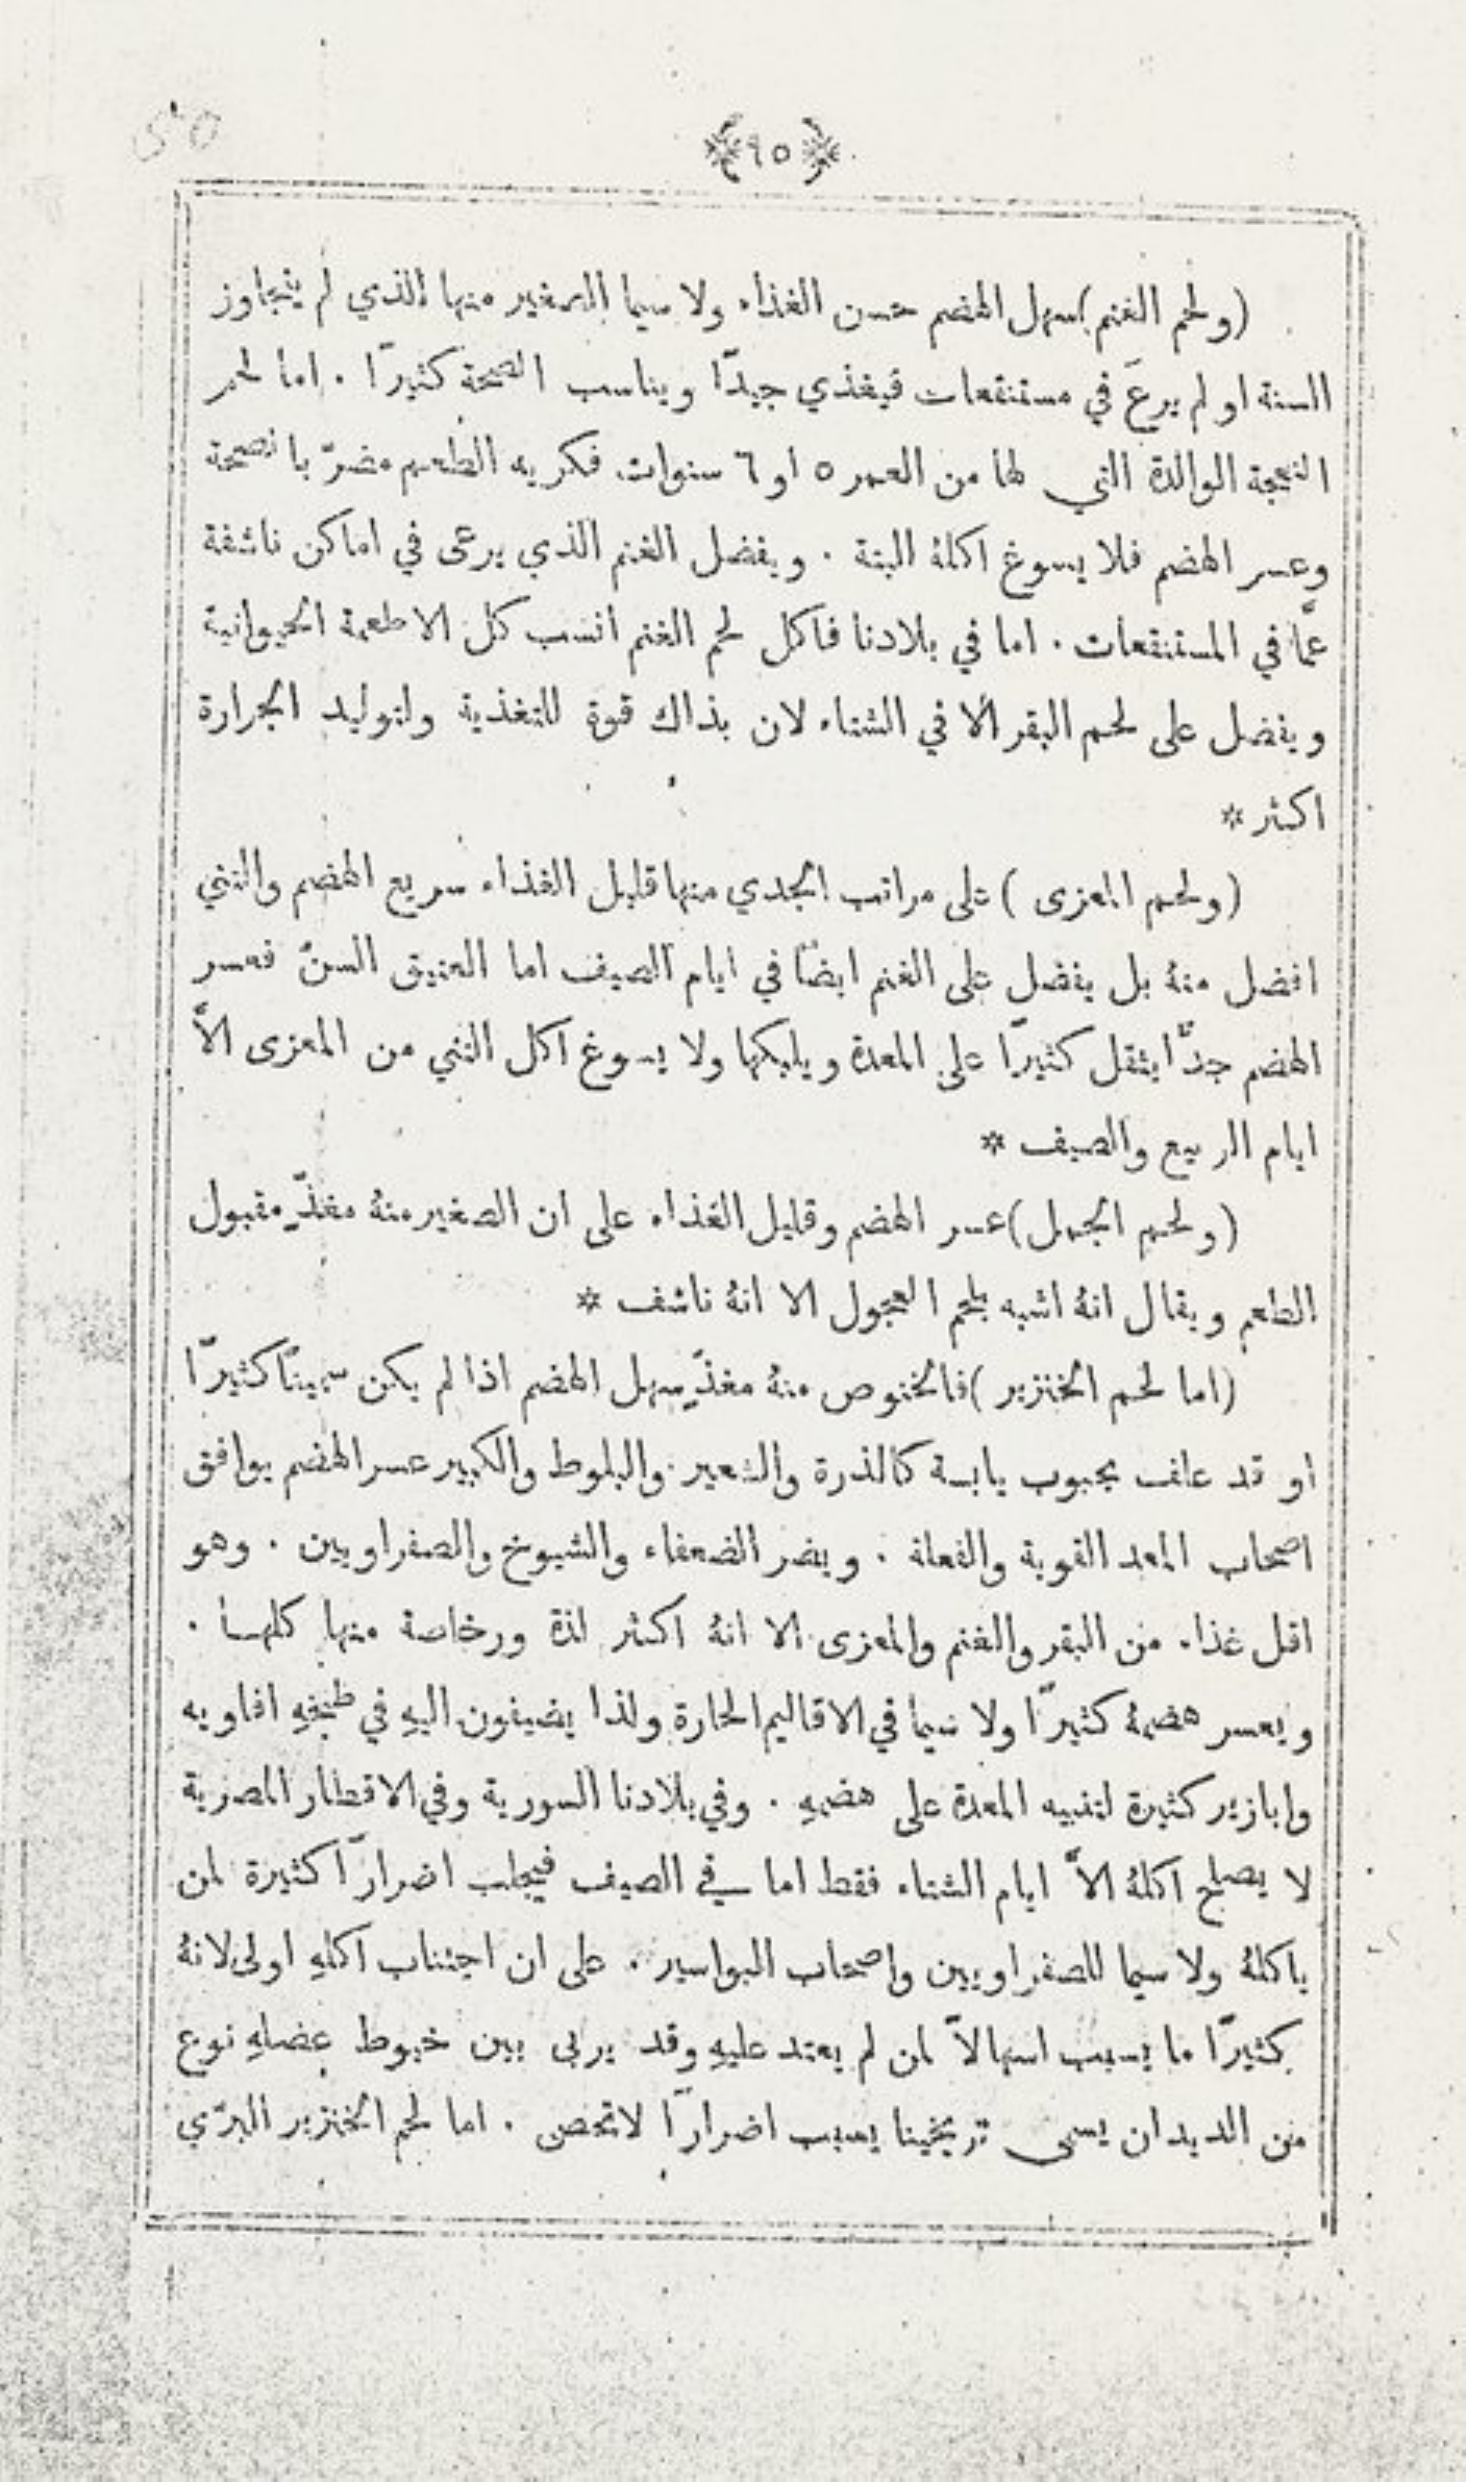 ٩٥
(ولحم الغنم) سهل الهضم حسن الغذاء ولا سيما الصغير منها الذي لم يتجاوز
السنة او لم يرعَ في مستنقعات فيغذي جيدًا ويناسب الصحة كثيرًا . اما لحم
النعجة الوالدة التي لها من العمر ٥ او ٦ سنوات فكريه الطعم مضرّ بالصحة
وعسر الهضم فلا يسوغ اكلهُ البتة . ويفضل الغنم الذي يرعى في اماكن ناشفة
عمَّا في المستنقعات . اما في بلادنا فاكل لحم الغنم انسب كل الاطعمة الحيوانية
ويفضل على لحم البقر الا في الشتاء لان بذاك قوة للتغذية ولتوليد الحرارة
اكثر *
(ولحم المعزى) على مراتب الجدي منها قليل الغذاء سريع الهضم والثني
افضل منهُ بل يفضل على الغنم ايضًا في ايام الصيف اما العتيق السنّ فعسر
الهضم جدًّا يثقل كثيرًا على المعدة ويلبكها ولا يسوغ اكل الثني من المعزى الاَّ
ايام الربيع والصيف *
(ولحم الجمل) عسر الهضم وقليل الغذاء على ان الصغير منهُ مغذٍّ مقبول
الطعم ويقال انهُ اشبه بلحم العجول الا انهُ ناشف *
(اما لحم الخنزير) فالخنوص منهُ مغذٍّ سهل الهضم اذا لم يكن سمينًا كثيرًا
او قد علف بحبوب يابسة كالذرة والشعير والبلوط والكبير عسر الهضم يوافق
اصحاب المعد القوية والفعلة . ويضر الضعفاء والشيوخ والصفراويين . وهو
اقل غذاء من البقر والغنم والمعزى الا انهُ اكثر لذة ورخاصة منها كلها .
ويعسر هضمهُ كثيرًا ولا سيما في الاقاليم الحارة ولذا يضيفون اليهِ في طبخهِ افاويه
وابازير كثيرة لتنبيه المعدة على هضمهِ . وفي بلادنا السورية وفي الاقطار المصرية
لا يصلح اكلهُ الاَّ ايام الشتاء فقط اما في الصيف فيجلب اضرارًا كثيرة لمن
ياكلهُ ولا سيما للصفراويين واصحاب البواسير . على ان اجتناب اكلهِ اولى لانهُ
كثيرًا ما يسبب اسهالاً لمن لم يعتد عليهِ وقد يربى بين خيوط عضلهِ نوع
من الديدان يسمى تريخينا يسبب اضرارًا لا تحصى . اما لحم الخنزير البرّي